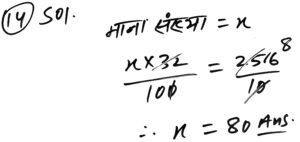 (14) Sol. माना संख्या = x
x×32/100 = 256 8/10
∴ x = 80 Ans.